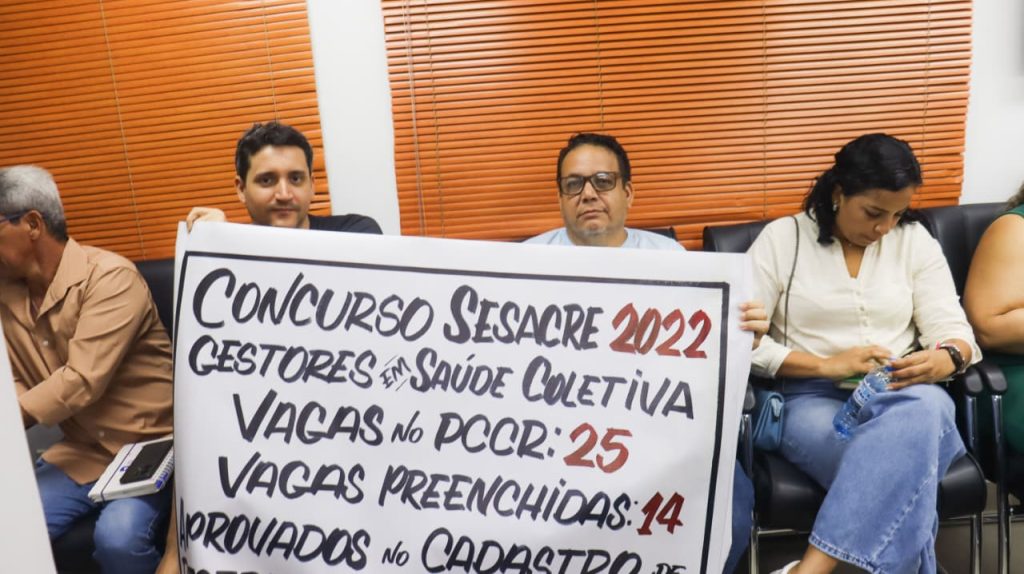 CONCURSO SESACRE 2022
GESTORES EM SAÚDE COLETIVA
VAGAS NO PCCR: 25
VAGAS PREENCHIDAS: 14
APROVADOS NO CADASTRO DE